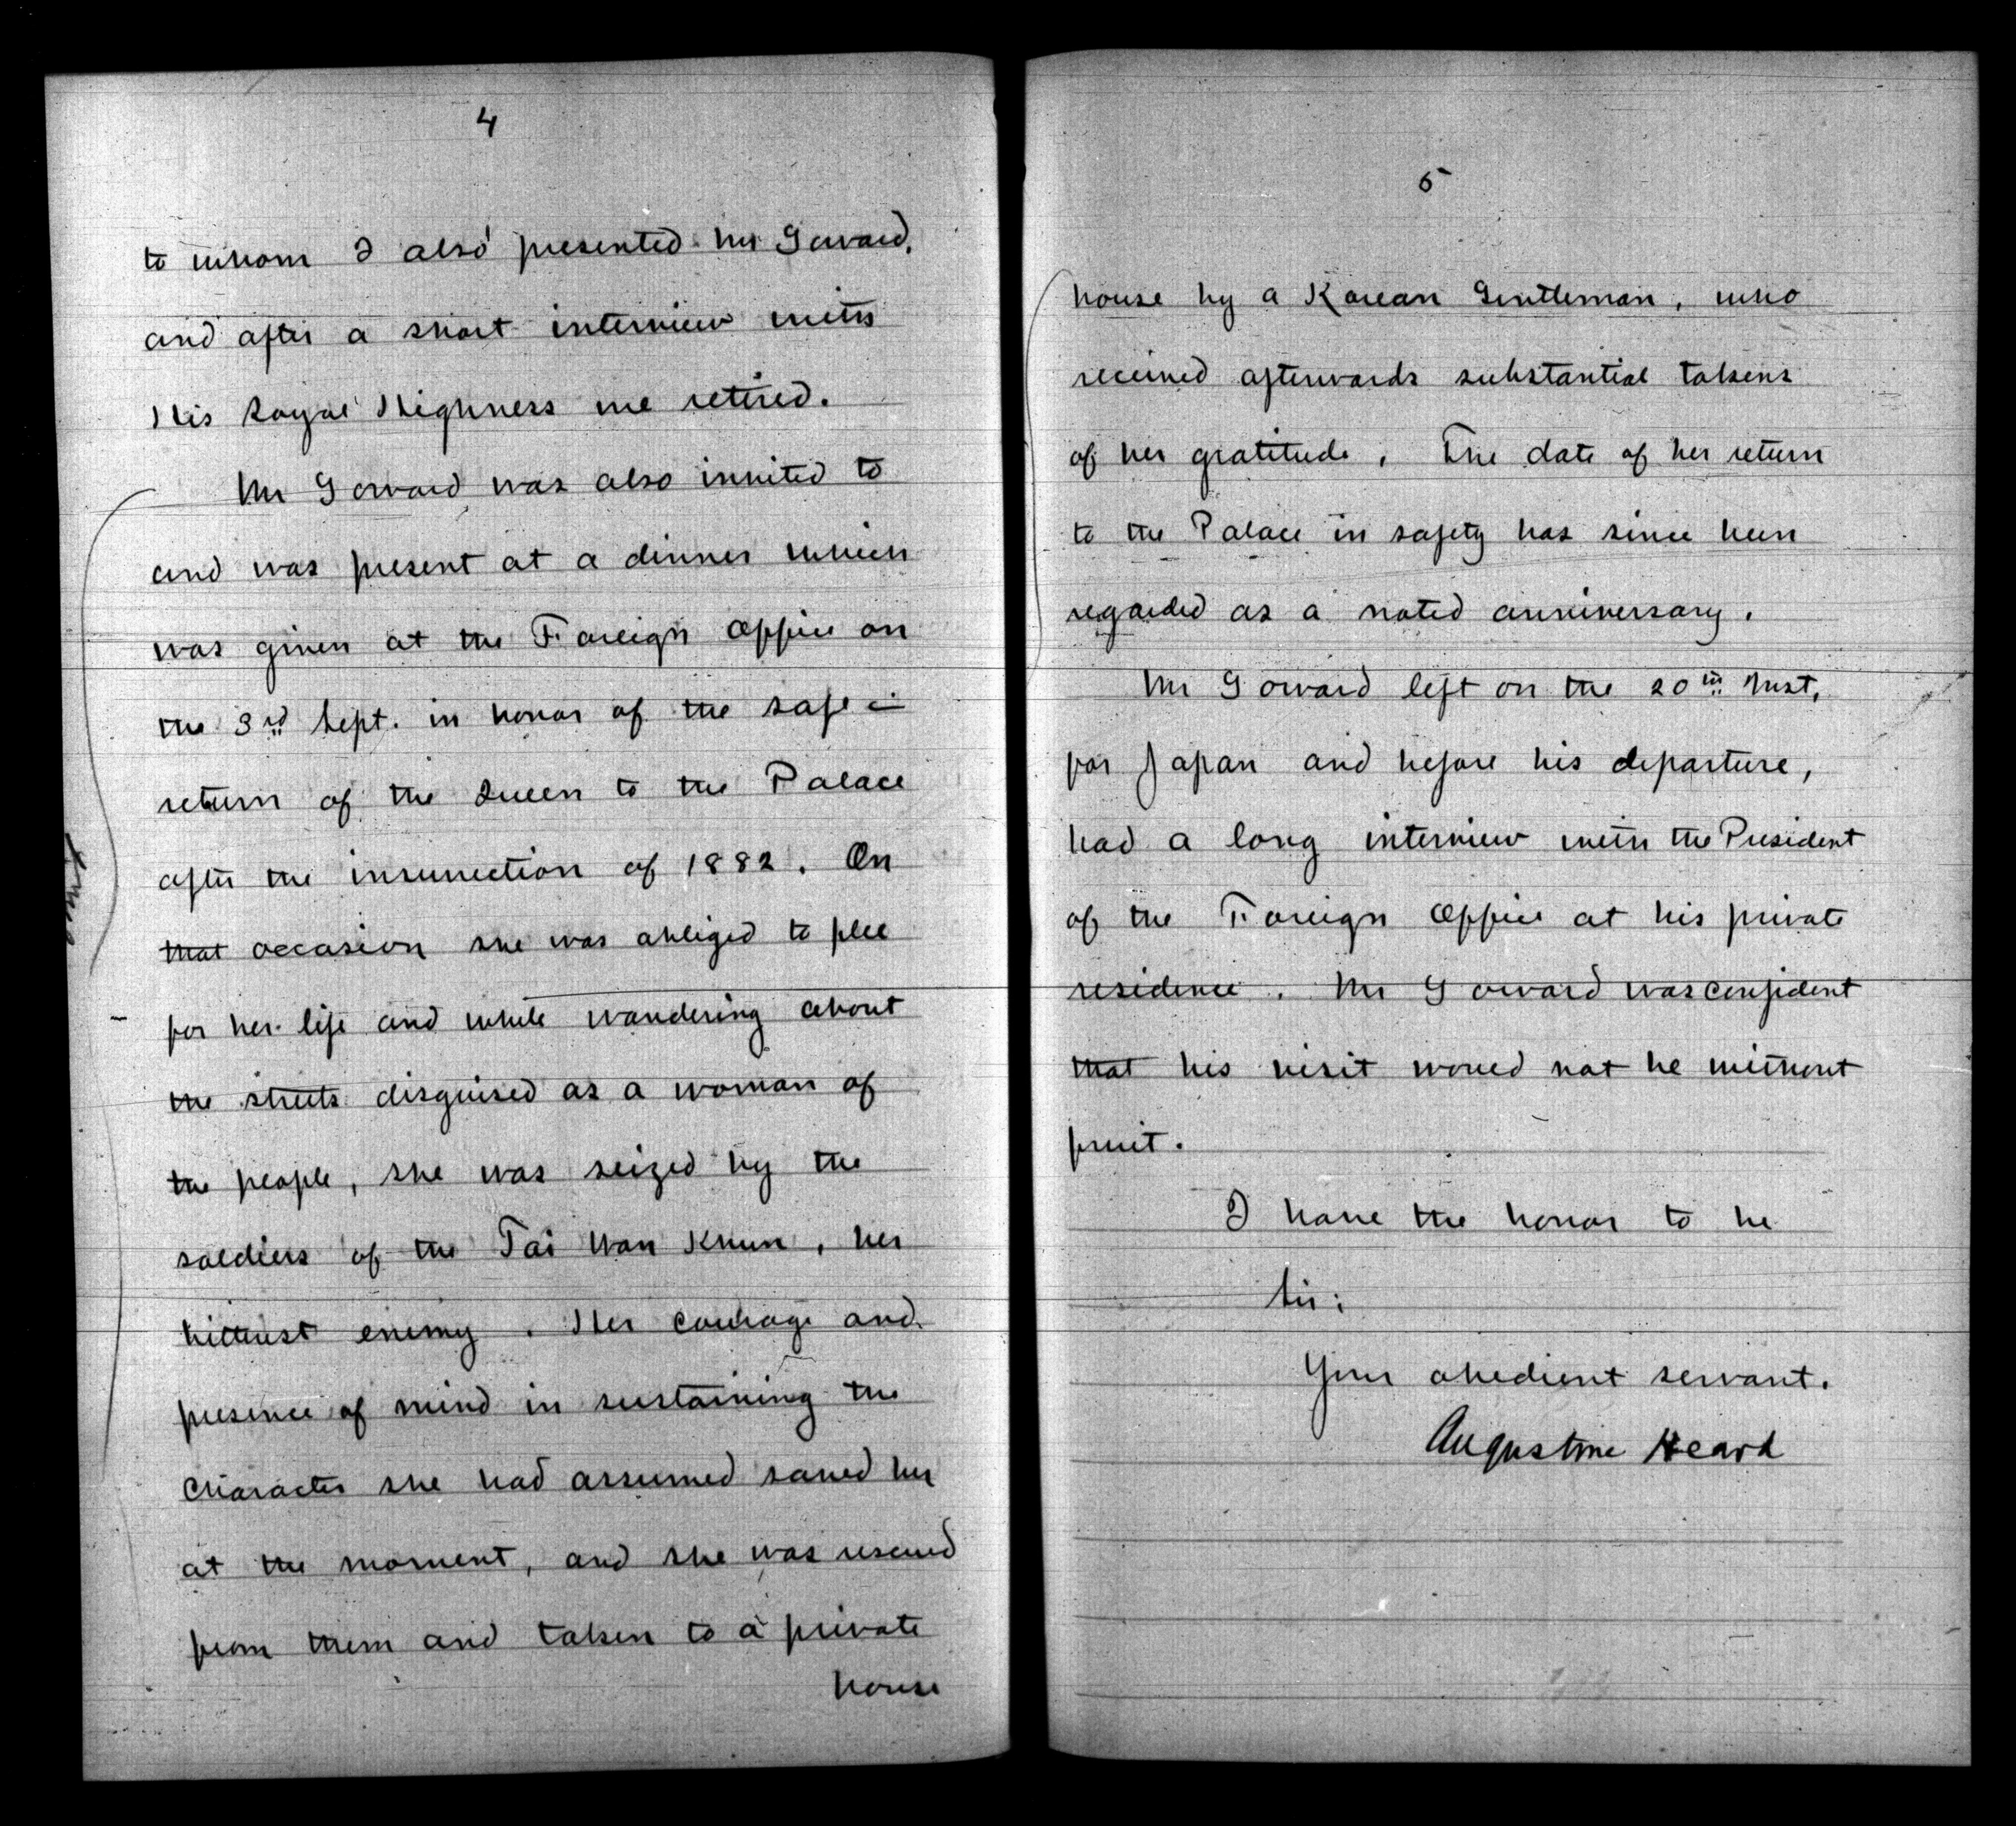 4
to whom I also presented Mr Goward,
and after a short interview with
His Royal Highness we retired.
Mr Goward was also invited to
and was present at a dinner which
was given at the Foreign Office on
the 3rd Sept. in honor of the safe
return of the Queen to the Palace
after the insurrection of 1882. On
that occasion she was obliged to flee
for her life and while wandering about
the streets disguised as a woman of
the people, she was seized by the
soldiers of the Tai Wan Khun, her
bitterest enemy. Her courage and
presence of mind in sustaining the
character she had assumed saved her
at the moment, and she was rescued
from them and taken to a private
house
5
house by a Korean Gentleman, who
received afterwards substantial tokens
of her gratitude. The date of her return
to the Palace in safety has since been
regarded as a noted anniversary.
Mr Goward left on the 20th Inst,
for Japan and before his departure,
had a long interview with the President
of the Foreign Office at his private
residence. Mr Goward was confident
that his visit would not be without
fruit.
I have the honor to be
Sir:
Your obedient servant.
Augustine Heard